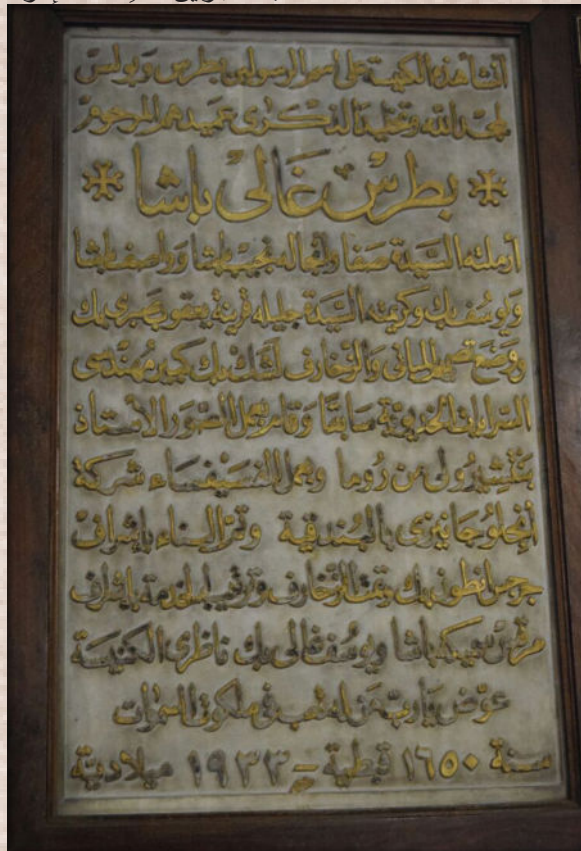 أنشأ هذه الكنيسة على اسم الرسولين بطرس وبولس
لمجد الله وتخليدا لذكرى عميدهم المرحوم
بطرس غالى باشا
أرملته السيدة صفا وأنجاله نجيب باشا وواصف باشا
ويوسف بك وكريمته السيدة جليله قرينة يعقوب صبرى بك
ووضع تصميم المبانى والزخارف لاشك بك كبير مهندسى
السرايات الخديوية سابقا وقام بعمل الصور الأستاذ
من روما وعمل الفسيفساء شركة
أنجلو جانيزى بالبندقية وتم البناء بإشراف
جرجس انطون بك وتمت الزخارف وترتيب الخدمة بإشراف
مرقس سميكه باشا ويوسف غالى بك ناظرى الكنيسة
عوض يارب من له تعب فى ملكوت السموات
سنة ١٦٥٠ قبطية – ١٩٣٣ ميلادية